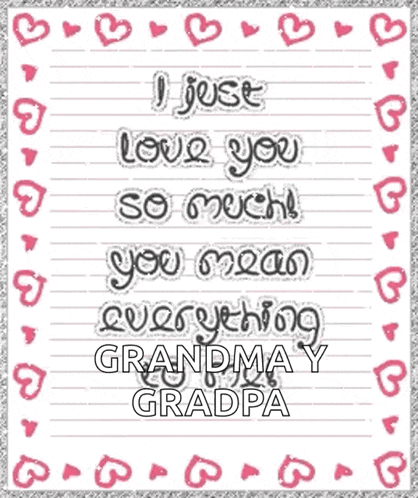 I just
love you
so much!
you mean
everything
GRANDMA Y
to me!
GRADPA